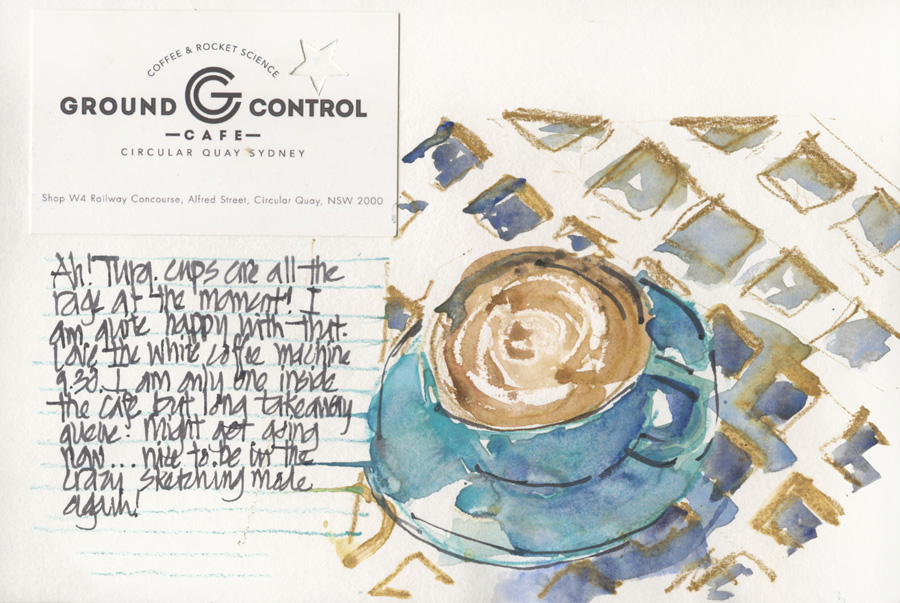 COFFEE & ROCKET SCIENCE
GROUND G CONTROL
CAFE
CIRCULAR QUAY SYDNEY
Shop W4 Railway Concourse, Alfred Street, Circular Quay, NSW 2000
Ah! Turq. cups are all the
rage at the moment! I
am quite happy with that.
Love the white coffee machine
9.30. I am only one inside
the cafe but long takeaway
queue. Might get going
now.... nice to be in the
crazy sketching mode
again!